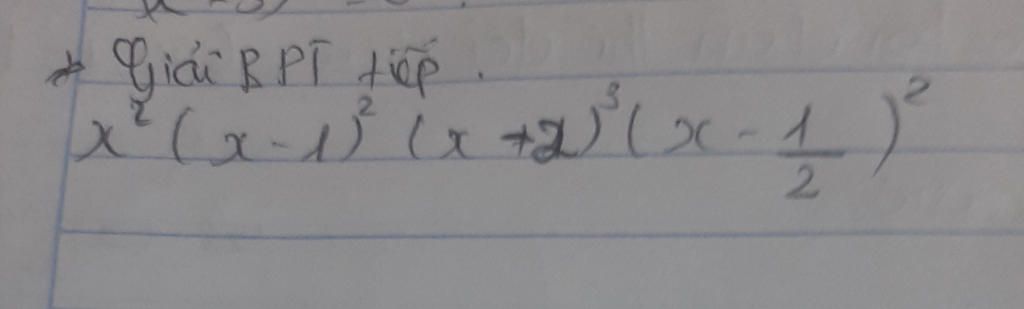 * Giải BPT tiếp.
x² (x - 1)² (x + 2)³ (x - 1/2)²